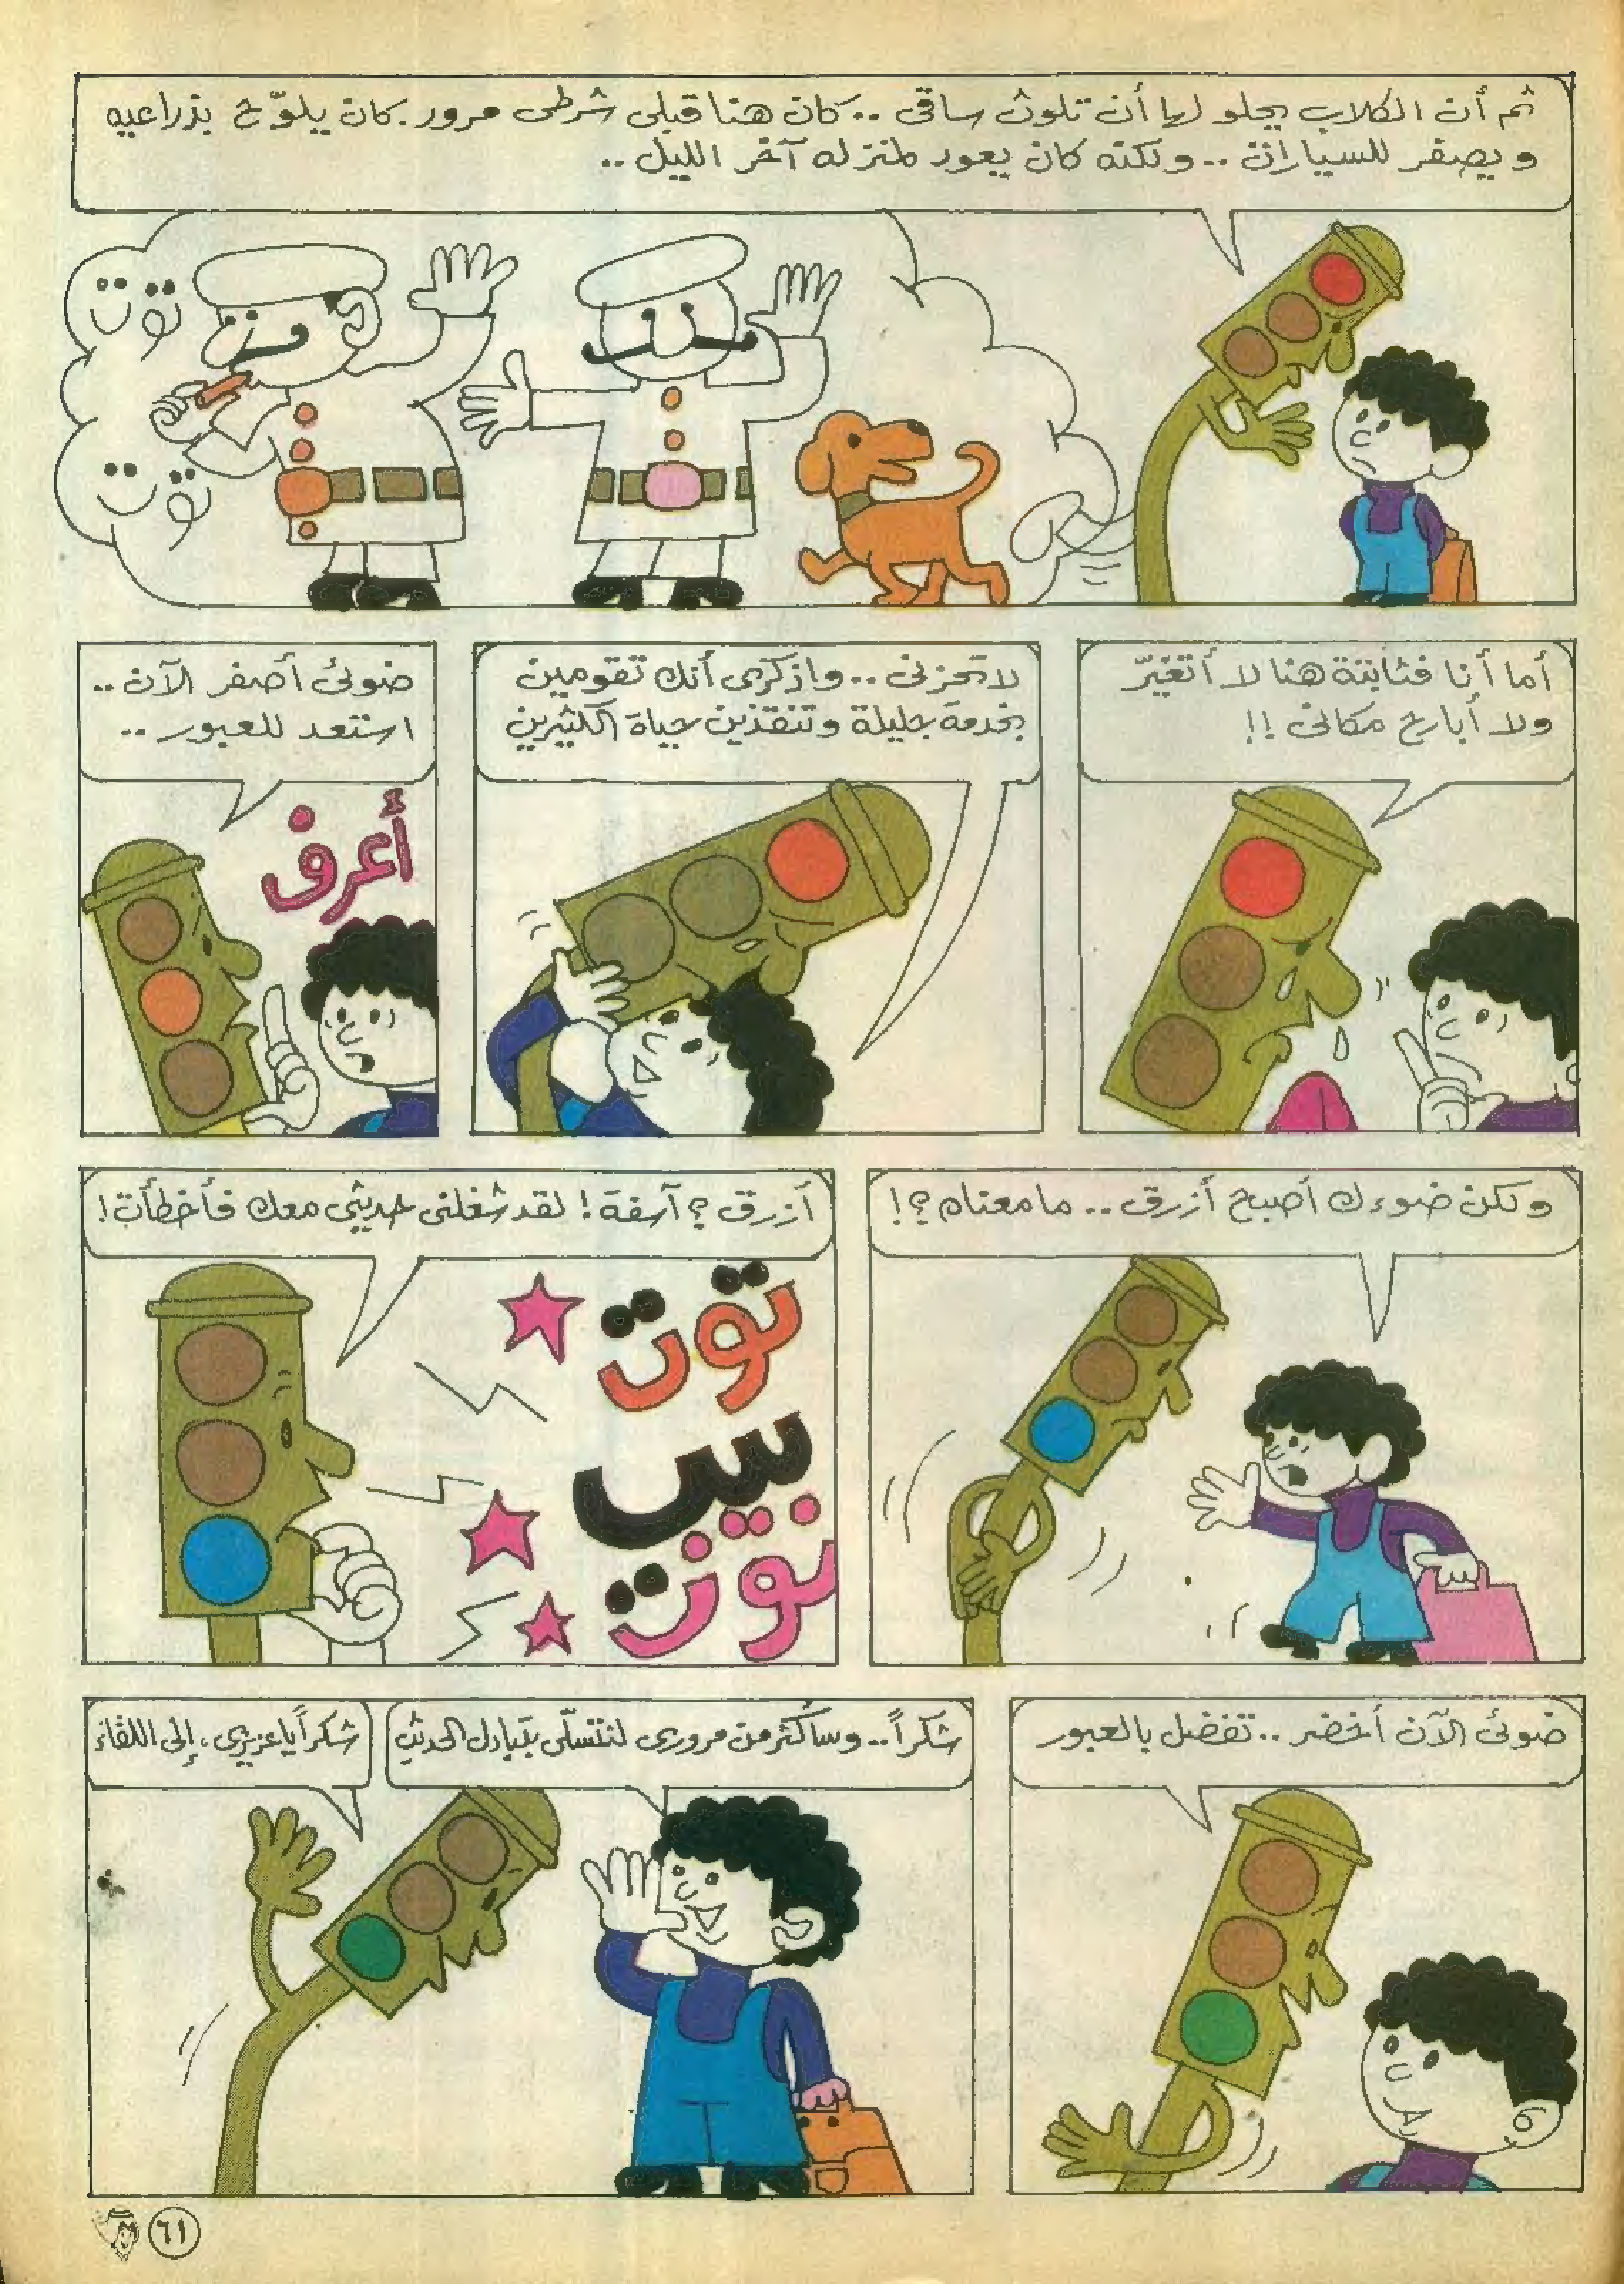 ثم أن الكلاب يحلو لها أن تلوث ساقى .. كان هنا قبلى شرطى مرور. كان يلوّح بذراعيه
و يصفر للسيارات .. ولكنه كان يعود لمنزله آخر الليل ..
توت
توت
أما أنا فثابتة هنا لا أتغيّر
ولا أبارح مكانى !!
لا تحزنى .. واذكرى أنك تقومين
بخدمة جليلة وتنقذين حياة الكثيرين
ضوئى أصفر الآن ..
استعد للعبور ..
أعرف
ولكن ضوءك أصبح أزرق .. ما معناه ؟!
أزرق ؟ آسفة ! لقد شغلنى حديثى معك فأخطأت !
توت
بيب
توت
ضوئى الآن أخضر .. تفضل بالعبور
شكراً .. وسأكثر من مرورى لنتسلّى بتبادل الحديث
شكراً يا عزيزى ، إلى اللقاء
٦١